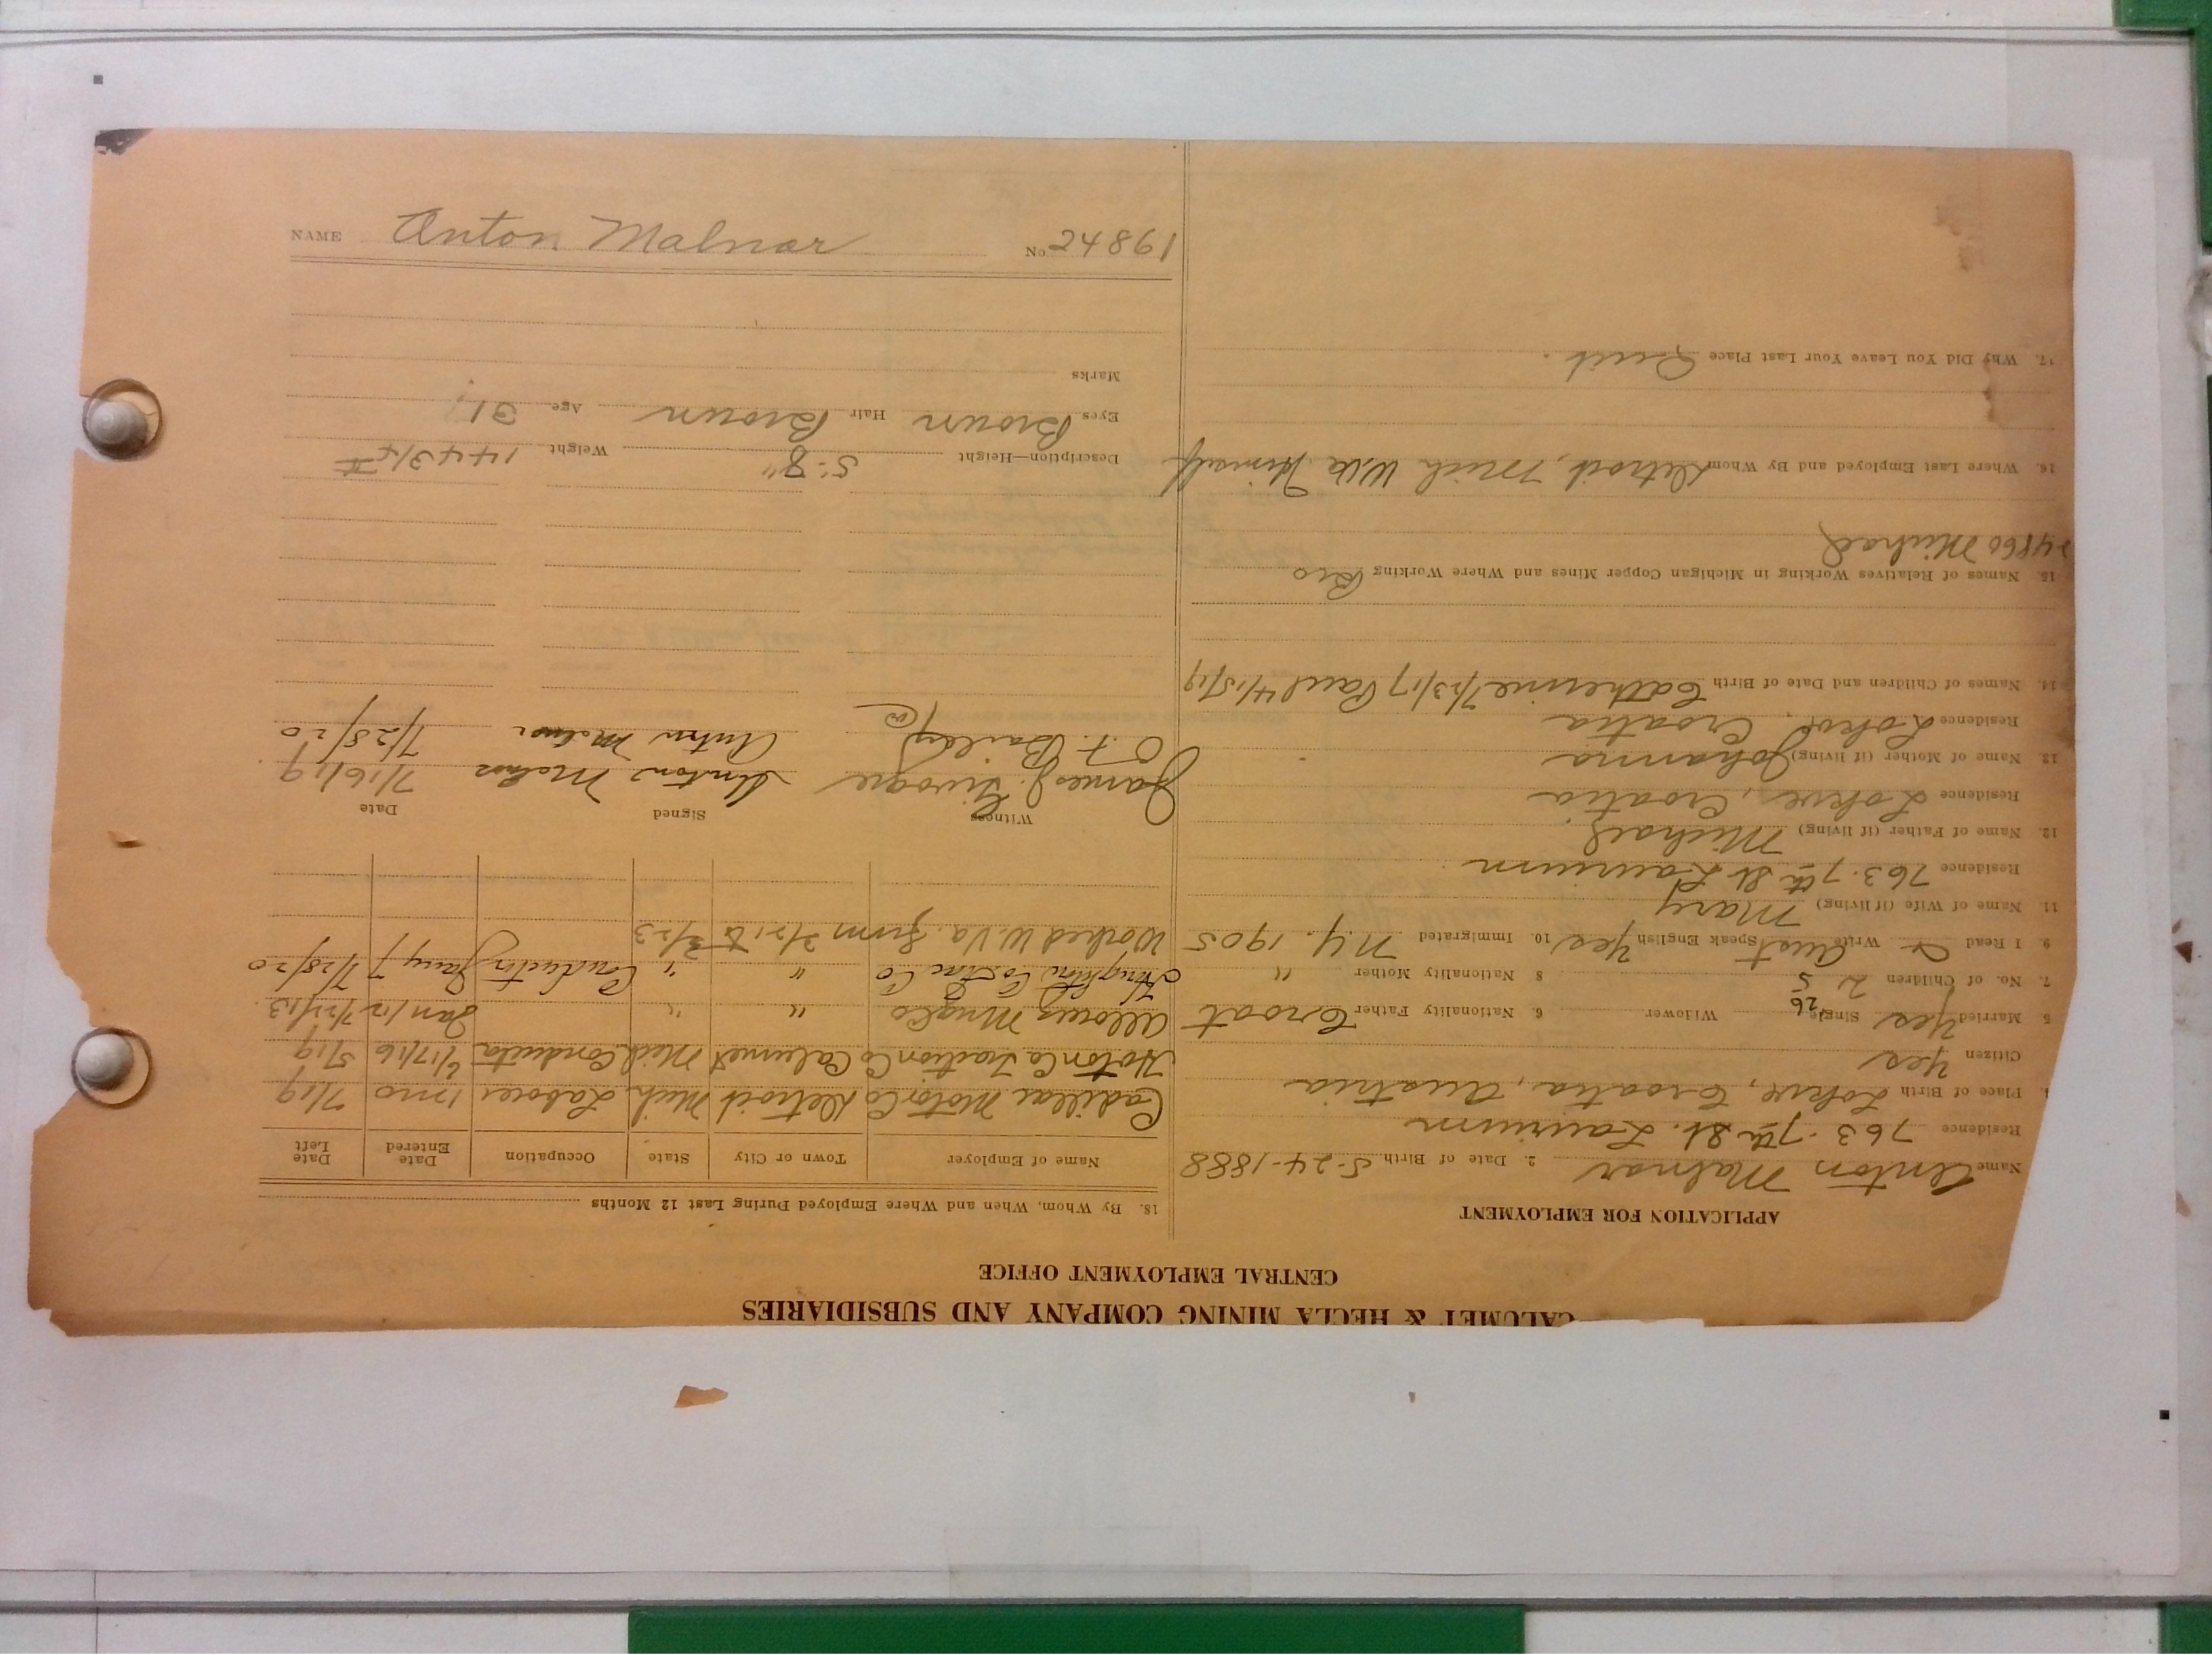 CALUMET & HECLA MINING COMPANY AND SUBSIDIARIES
CENTRAL EMPLOYMENT OFFICE
APPLICATION FOR EMPLOYMENT
Name Anton Malnar 2. Date of Birth 5-24-1888
Residence 763-7th St. Laurium
Place of Birth Lokve, Croatia, Austria
Citizen Yes
5. Married Yes Single 26 Widower 6. Nationality Father Croat
7. No. of Children 2 5 8 Nationality Mother "
9. I Read Write Aust Speak English Yes 10. Immigrated N.Y. 1905
11. Name of Wife (if living) Mary
Residence 763-7th St Laurium
12. Name of Father (if living) Michael
Residence Lokve, Croatia
13. Name of Mother (if living) Johanna
Residence Lokve, Croatia
14. Names of Children and Date of Birth Catherine 7/23/17 Paul 4/15/19
15. Names of Relatives Working in Michigan Copper Mines and Where Working Bro
24860 Michael
16. Where Last Employed and By Whom Detroit, Mich W.Va Himself
17. Why Did You Leave Your Last Place Quit.
18. By Whom, When and Where Employed During Last 12 Months
Name of Employer Town or City State Occupation Date Entered Date Left
Cadillac Motor Co Detroit Mich. Laborer 1 mo 7/19
Hoton Co Traction Co Calumet Mich Conductor 6/17/16 5/19
Allouez Mng Co " " Jan/12 7/22/13
Houghton Co Trac Co " " Conductor 7/28/20
Worked W.Va. from 2/21 to 3/23
Witness Signed Date
James J. Anton Malnar 7/16/19
O.F. Bailey Anton Malnar 7/28/20
Description—Height 5-8" Weight 144 3/4 #
Eyes Brown Hair Brown Age 31
Marks
NAME Anton Malnar No. 24861